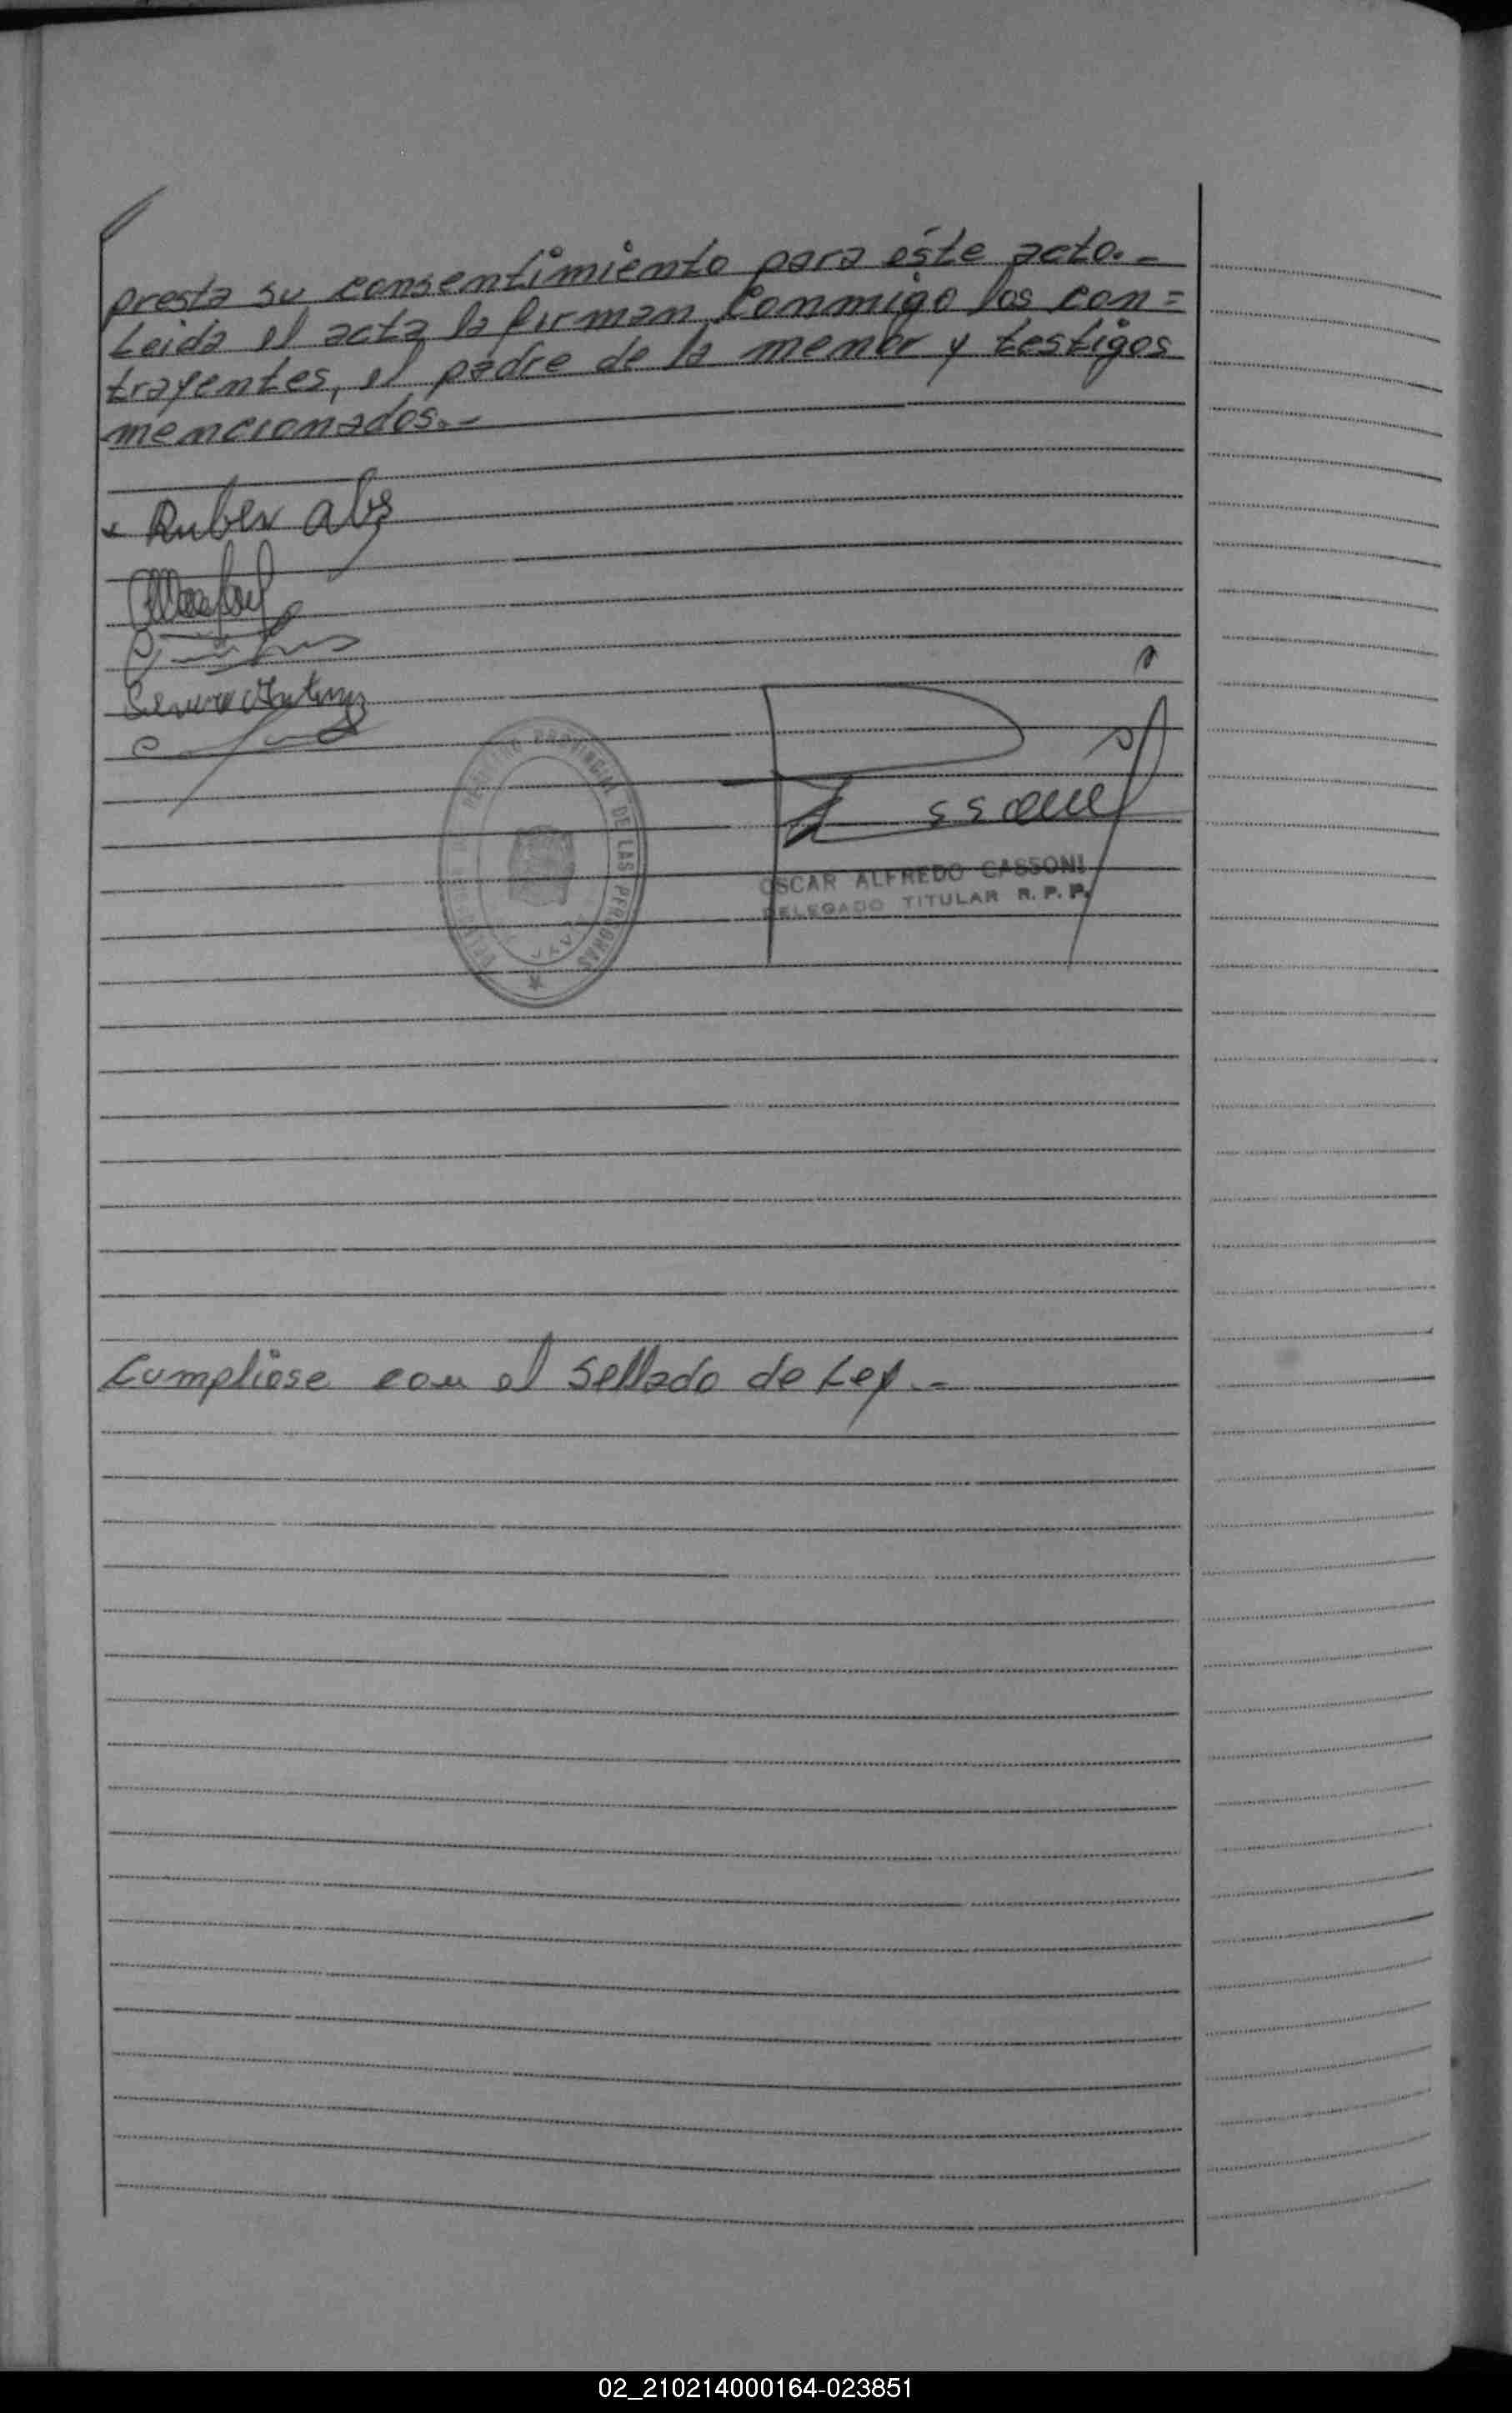 presta su consentimiento para éste acto.-
Leida el acta la firman conmmigo los con=
trayentes, el padre de la menor y testigos
mencionados.-
Ruben
PROVINCIAL DE LAS PERSONAS
OSCAR ALFREDO CASSONI
DELEGADO TITULAR R. P. P.
Cumpliose con el Sellado de Ley.-
02_210214000164-023851